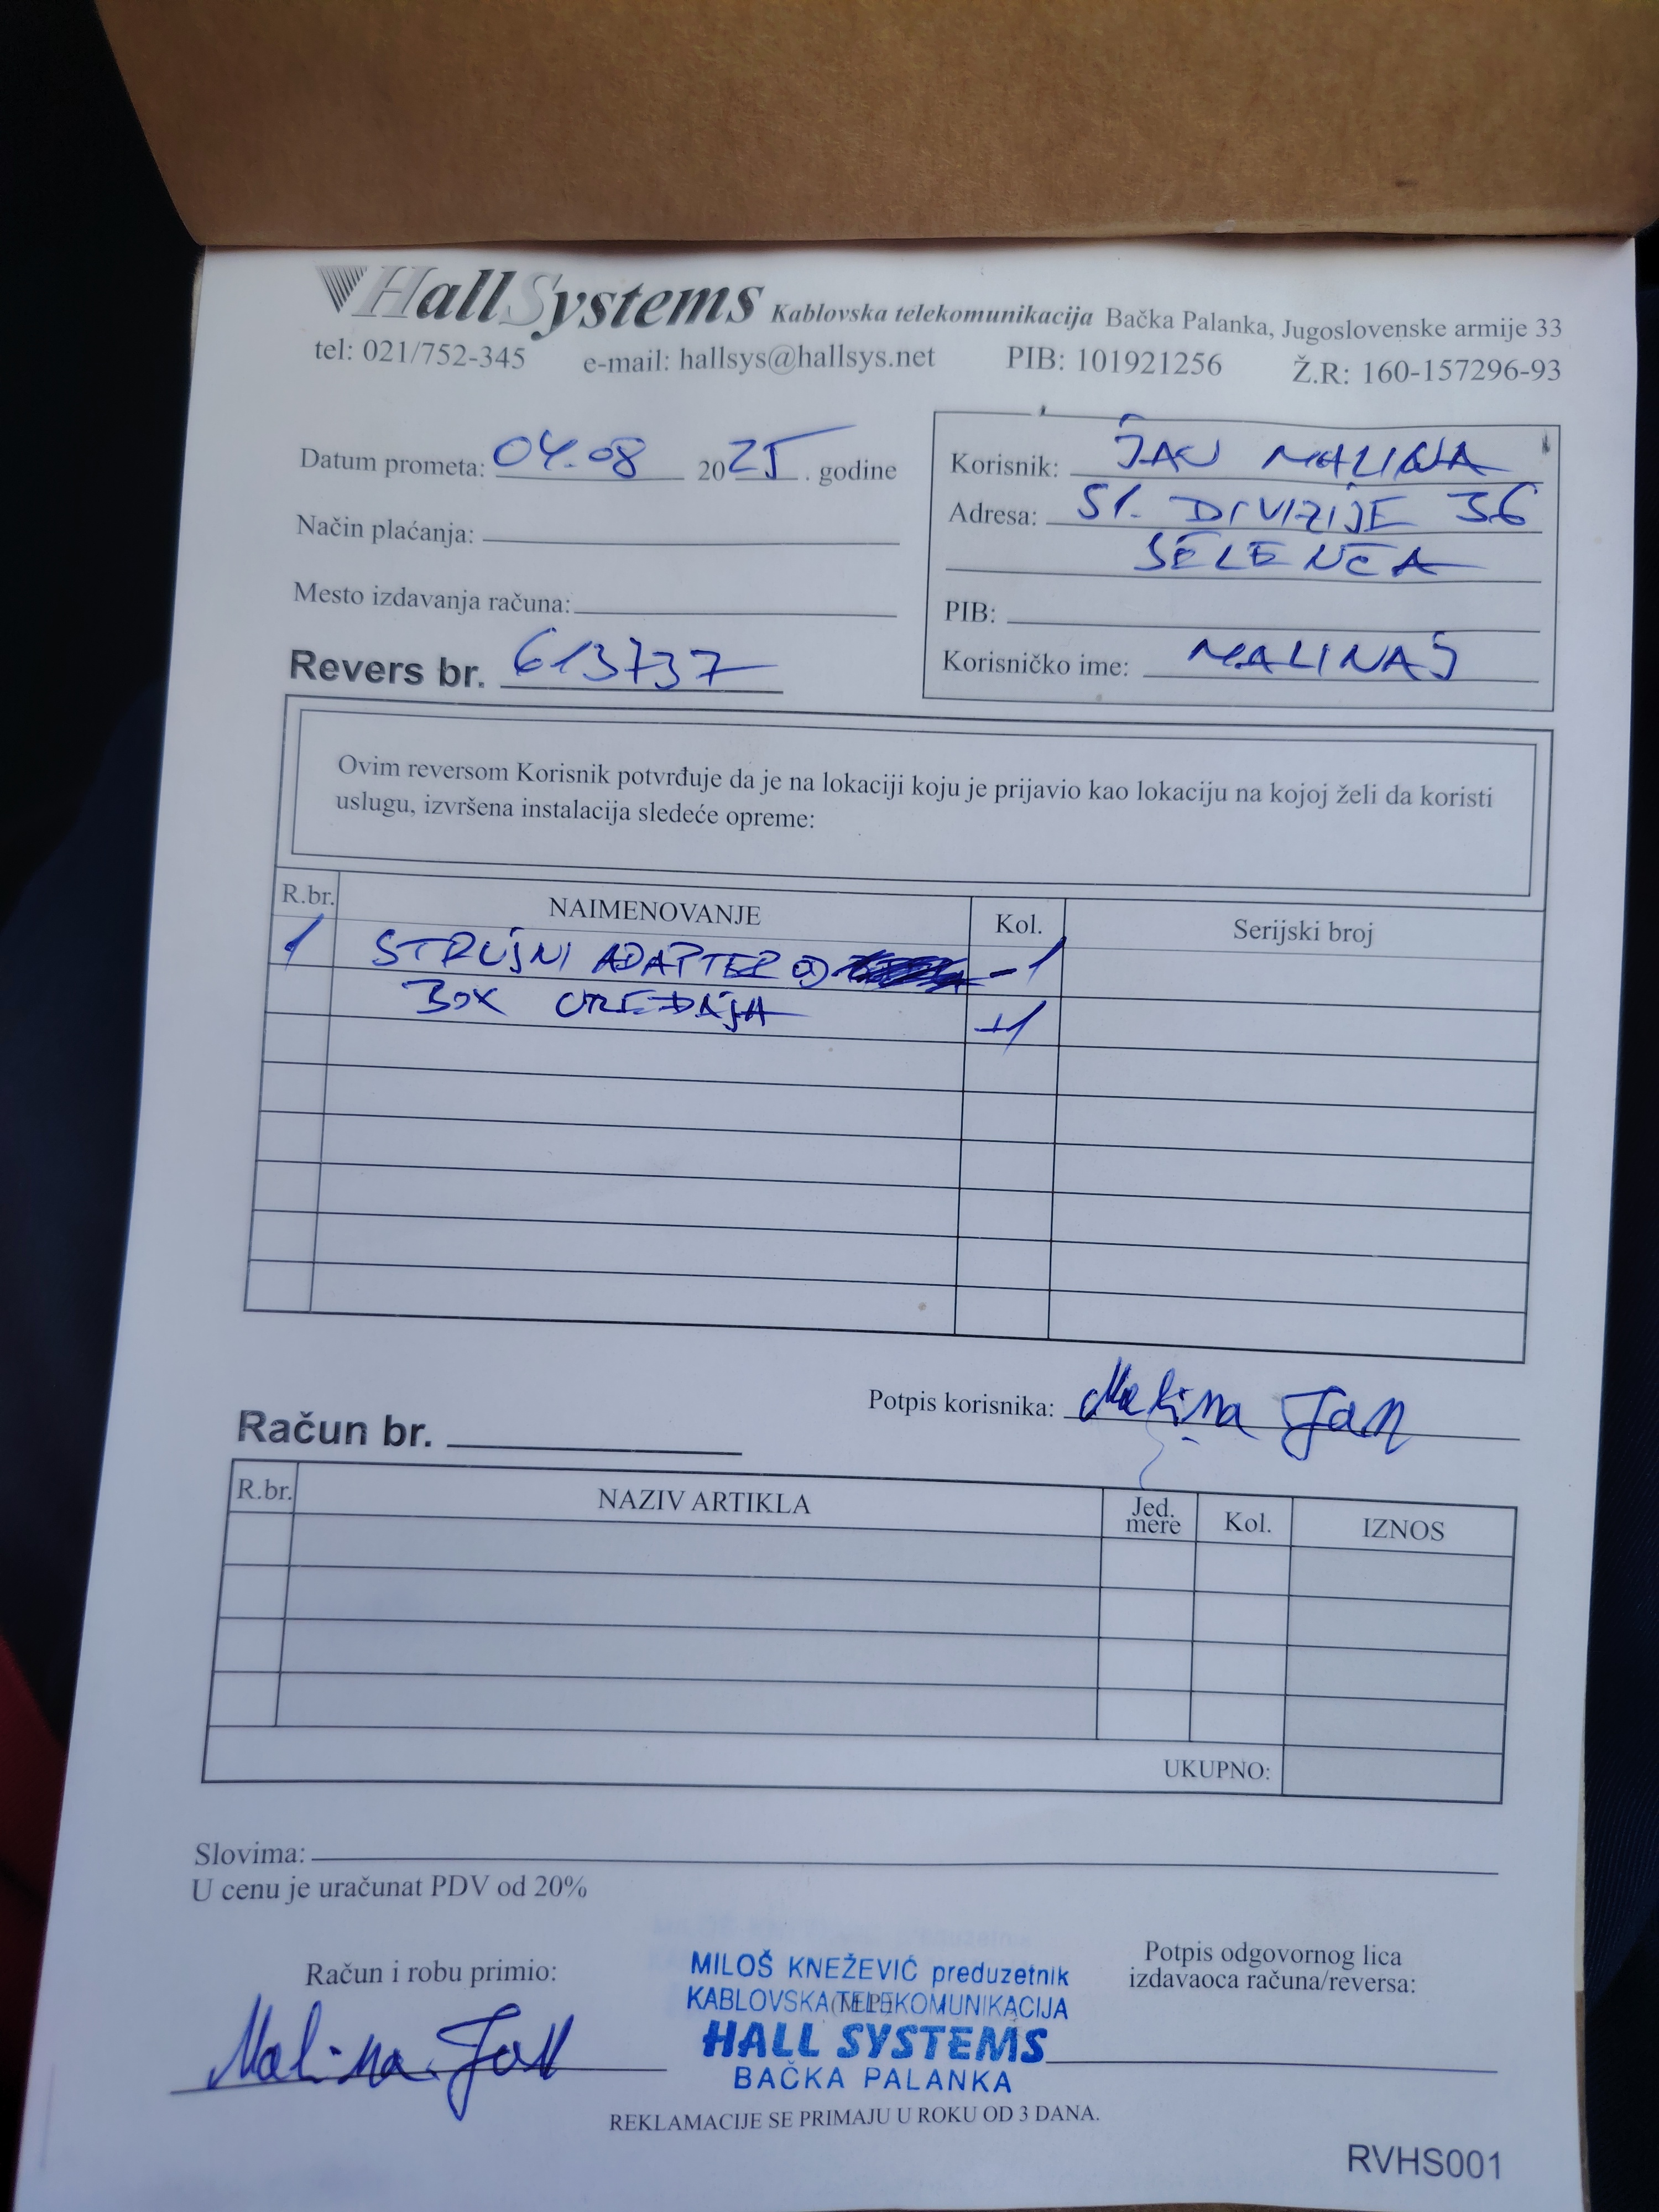 HallSystems Kablovska telekomunikacija Bačka Palanka, Jugoslovenske armije 33
tel: 021/752-345 e-mail: hallsys@hallsys.net PIB: 101921256 Ž.R: 160-157296-93
Datum prometa: 04.08 2025. godine
Način plaćanja:
Mesto izdavanja računa:
Revers br. 613737
Korisnik: JAN MALINA
Adresa: 51. DIVIZIJE 36
SELENČA
PIB:
Korisničko ime: MALINAJ
Ovim reversom Korisnik potvrđuje da je na lokaciji koju je prijavio kao lokaciju na kojoj želi da koristi
uslugu, izvršena instalacija sledeće opreme:
R.br. NAIMENOVANJE Kol. Serijski broj
1 STRUJNI ADAPTER OD -1
BOX UREĐAJA +1
Potpis korisnika: Malina Jan
Račun br.
R.br. NAZIV ARTIKLA Jed. mere Kol. IZNOS
UKUPNO:
Slovima:
U cenu je uračunat PDV od 20%
Račun i robu primio:
Malina Jan
MILOŠ KNEŽEVIĆ preduzetnik
KABLOVSKA TELEKOMUNIKACIJA
(M.P.)
HALL SYSTEMS
BAČKA PALANKA
Potpis odgovornog lica
izdavaoca računa/reversa:
REKLAMACIJE SE PRIMAJU U ROKU OD 3 DANA.
RVHS001